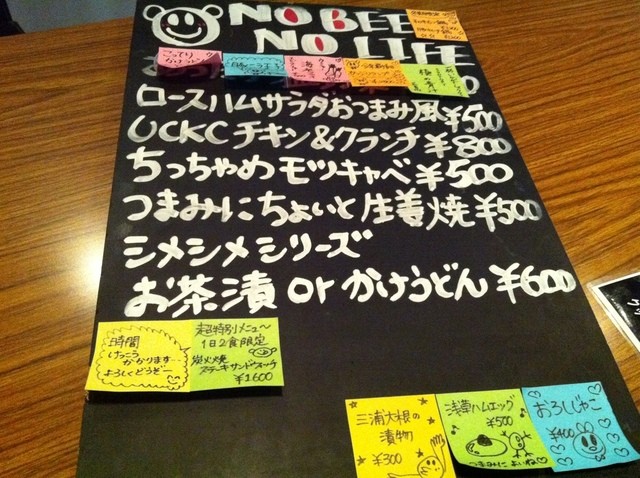 NO BEE
NO LIFE
こってり
ロースハムサラダおつまみ風 ¥500
UCKCチキン&クランチ ¥800
ちっちゃめモツキャベ ¥500
つまみにちょいと生姜焼 ¥500
シメシメシリーズ
お茶漬 or かけうどん ¥600
時間
けっこう
かかります…
よろしくどうぞー
超特別メニュ〜
1日2食限定
炭火焼
ステーキサンドウィッチ
¥1600
三浦大根の
漬物
¥300
浅草ハムエッグ
¥500
つまみにはよいね
おろしじゃこ
¥400